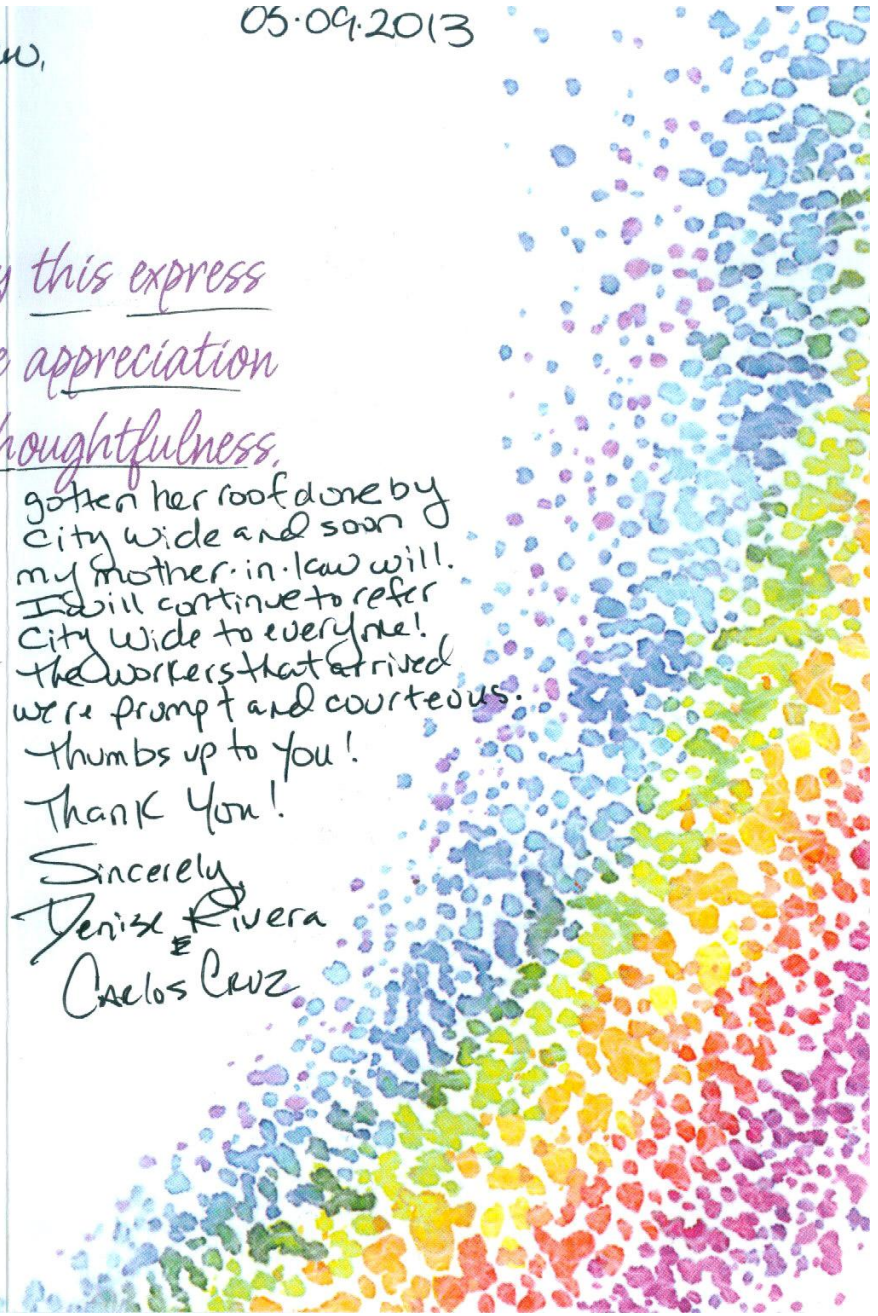 05.09.2013
w,
y this express
e appreciation
houghtfulness.
gotten her roof done by
city wide and soon
my mother-in-law will.
I will continue to refer
City Wide to everyone!
the workers that arrived
were prompt and courteous.
Thumbs up to You!
Thank You!
Sincerely,
Denise Rivera
&
Carlos Cruz